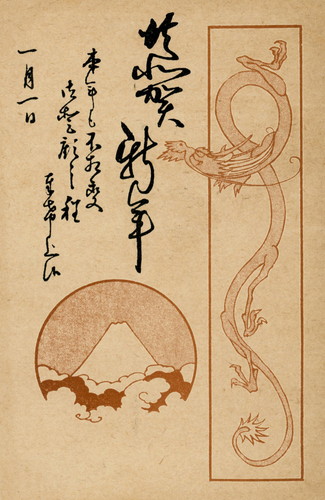 恭賀新年
本年も不相変
御愛顧之程
奉希上候
一月一日